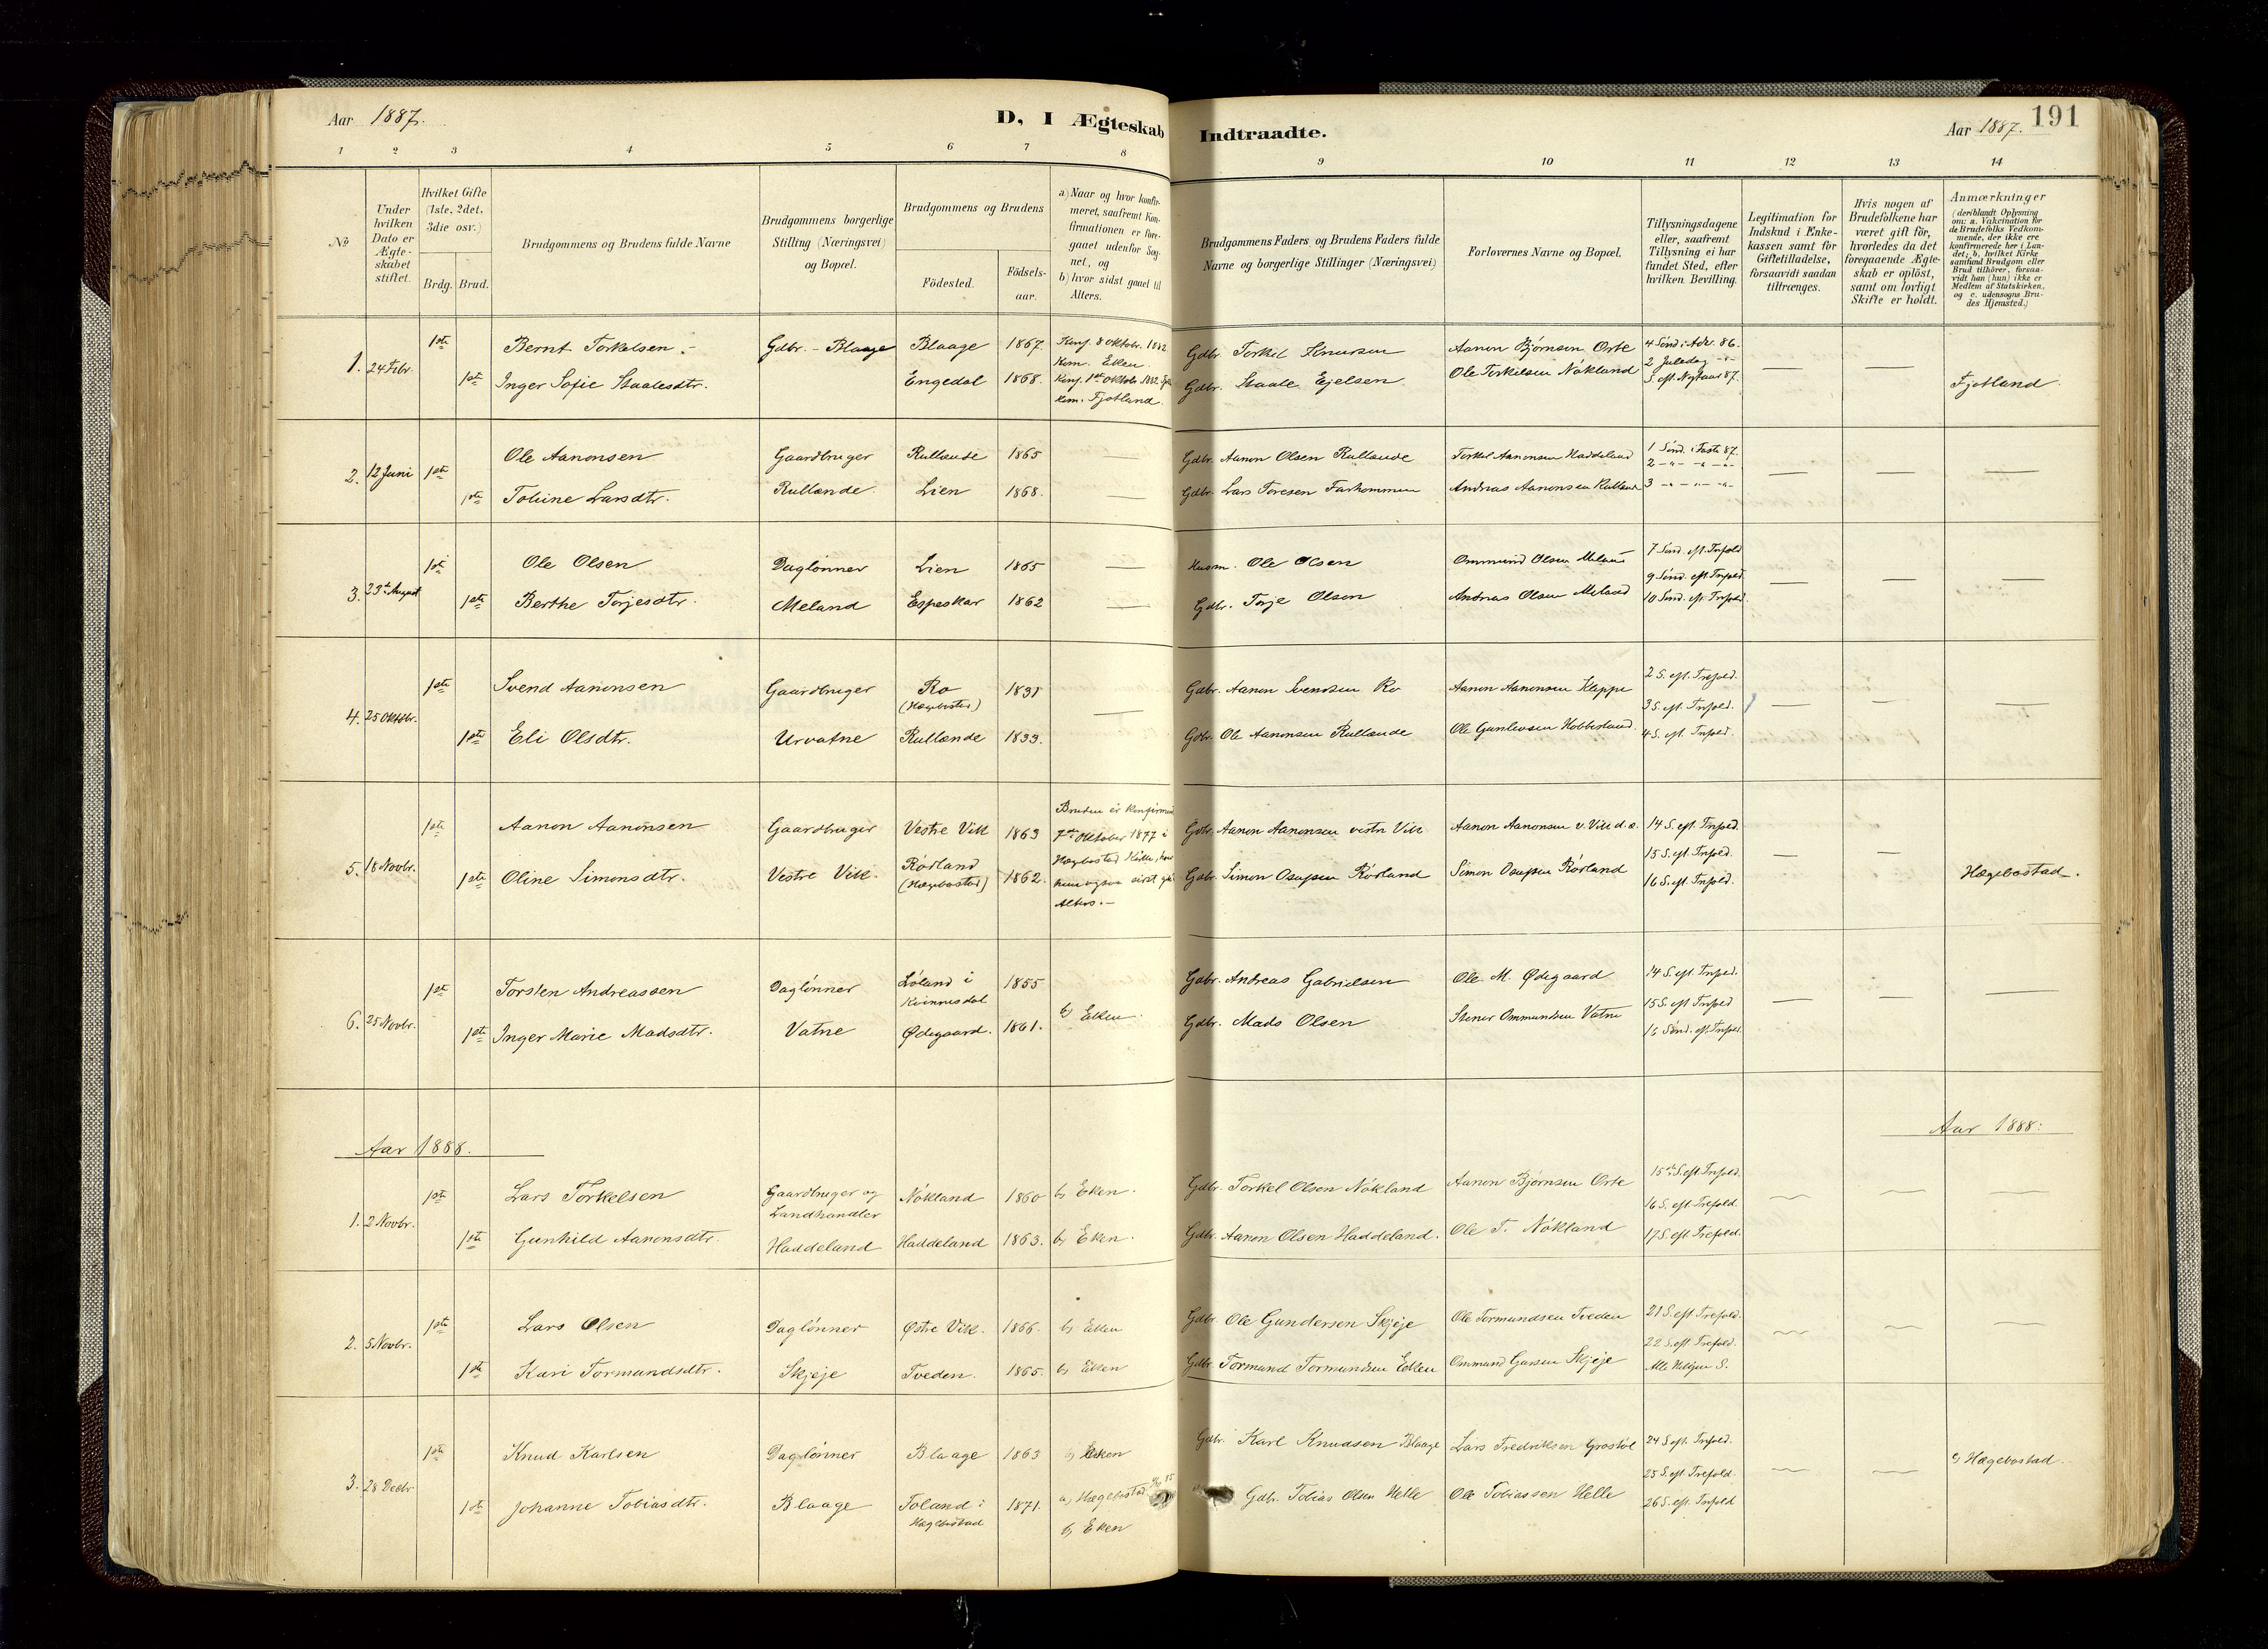 Aar 1887.
D, I Ægteskab Indtraadte.
Aar 1887. 191
1 2 3 4 5 6 7 8 9 10 11 12 13 14
No
Under hvilken Dato er Ægteskabet stiftet.
Hvilket Gifte (1ste, 2det, 3die osv.)
Brdg. Brud.
Brudgommens og Brudens fulde Navne
Brudgommens borgerlige Stilling (Næringsvei) og Bopæl.
Brudgommens og Brudens
Födested.
Födselsaar.
a) Naar og hvor konfirmeret, saafremt Konfirmationen er foregaaet udenfor Sognet, og
b) hvor sidst gaaet til Alters.
Brudgommens Faders og Brudens Faders fulde Navne og borgerlige Stillinger (Næringsvei)
Forlovernes Navne og Bopæl.
Tillysningsdagene eller, saafremt Tillysning ei har fundet Sted, efter hvilken Bevilling.
Legitimation for Indskud i Enkekassen samt for Giftetilladelse, forsaavidt saadan tiltrænges.
Hvis nogen af Brudefolkene har været gift för, hvorledes da det foregaaende Ægteskab er oplöst, samt om lovligt Skifte er holdt.
Anmærkninger
(deriblandt Oplysning om: a. Vakcination for de Brudefolks Vedkommende, der ikke ere konfirmerede her i Landet; b. hvilket Kirkesamfund Brudgom eller Brud tilhörer, forsaavidt han (hun) ikke er Medlem af Statskirken, og c. udensogns Brudes Hjemsted.)
1. 24 Febr. 1ste Bernt Torkelsen. Gdbr. - Blaage Blaage 1867. Konf. 8 Oktobr. 1882 Kom. Eiken Gdbr. Torkel Knutsen Aanon Bjørnsen Orte 4 Sönd i Adv. 86.
1ste Inger Sofie Staalesdtr. Engedal 1868. Konf. 1ste Oktobr 1882. Kom. Fjotland. Gdbr. Staale Ejelsen Ole Torkelsen Nökland 2 Juledag S. eft. Nytaar 87. Fjotland
2. 12 Juni 1ste Ole Aanonsen Gaardbruger Rullande 1865 Gdbr. Aanon Olsen Rullande Torkel Aanonsen Haddeland 1 Sönd. i Faste 87.
1ste Tobine Larsdtr. Rullande Lien 1868. Gdbr. Lars Toresen Andreas Aanonsen Rullande 2 3
3. 23de August 1ste Ole Olsen Daglønner Lien 1865 Husm. Ole Olsen Ommund Olsen Meland 7 Sönd. eft. Trefold
1ste Berthe Torjesdtr. Meland Espeskar 1862 Gdbr. Torje Olsen Andreas Olsen Meland 9 Sönd. eft. Trefold. 10 Sönd. eft. Trefold.
4. 25 Oktobr. 1ste Svend Aanonsen Gaardbruger Ro (Hægebostad) Gdbr. Aanon Svendsen Ro Aanon Aanonsen Kleppe 2 S. eft. Trefold.
1ste Eli Olsdtr. Urvatne Rullande Gdbr. Ole Aanonsen Rullande Ole Gunlevsen 3 S. eft. Trefold. 4 S. eft. Trefold.
5. 18 Novbr. 1ste Aanon Aanonsen Gaardbruger Vestre Vik 1863 Bruden er konfirmeret 7de Oktober 1877 i Gdbr. Aanon Aanonsen vestre Vik Aanon Aanonsen v. Vik d.æ. 14 S. eft. Trefold.
1ste Oline Simonsdtr. Vestre Vik. Rörland (Hægebostad) 1862. Hægebostad Kirke, hvor hun ogsaa sidst Alters. Gdbr. Simon Osufsen Rörland Simon Osufsen Rörland 15 S. eft. Trefold. 16 S. eft. Trefold. Hægebostad.
6. 25 Novbr. 1ste Torsten Andreassen Daglønner Löland i Kvinnesdal 1855 Gdbr. Andreas Gabrielsen Ole M. Ødegaard 14 S. eft. Trefold.
1ste Inger Marie Madsdtr. Vatne Ødegaard. 1861. b) Eiken. Gdbr. Mads Olsen Stener Ommundsen Vatne 15 S. eft Trefold 16 Sönd. eft. Trefold.
Aar 1888. Aar 1888.
1. 2 Novbr. 1ste Lars Torkelsen Gaardbruger og Landhandler Nökland 1860 b) Eken. Gdbr. Torkel Olsen Nökland Aanon Bjørnsen Orte 15de S. eft. Trefold.
1ste Gunhild Aanonsdtr. Haddeland Haddeland 1863. b) Eken. Gdbr. Aanon Olsen Haddeland. Ole T. Nökland 16 S. eft Trefold. 17 S. eft Trefold.
2. 5 Novbr. 1ste Lars Olsen Daglønner Østre Vik. 1866. b) Eiken Gdbr. Ole Gundersen Skjeje Ole Tormundsen Tveden 21 S. eft Trefold.
1ste Kari Tormundsdtr. Skjeje Tveden. 1865. b) Eiken Gdbr. Tormund Tormundsen Eiken Ommund Skjeje 22 S. eft Trefold. Alle Helgen S.
3. 28 Decbr 1ste Knud Karlsen Daglønner Blaage 1863 b) Eiken Gdbr. Karl Knudsen Blaage Lars Fredriksen 24 S. eft. Trefold.
1ste Johanne Tobiasdtr. Blaage Toland i Hægebostad 1871. a) Hægebostad b) Eken Gdbr. Tobias Olsen Helle Ole Tobiassen Helle 25 S. eft Trefold. 26 S. eft. Trefold c) Hægebostad